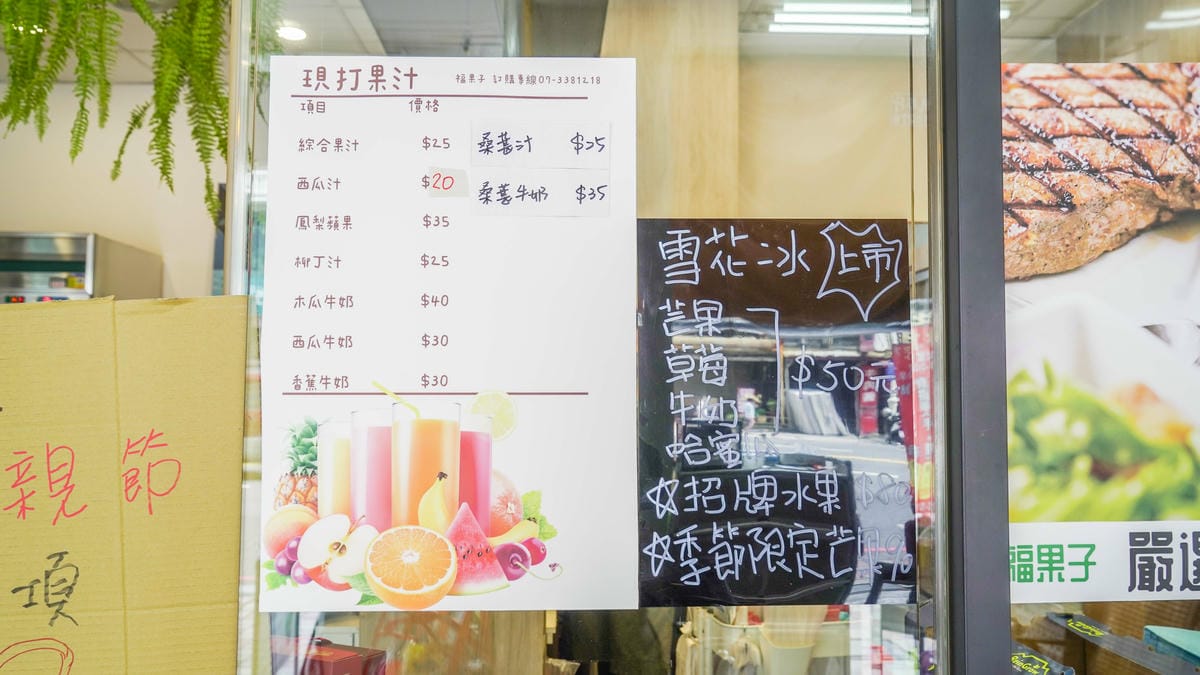 現打果汁 福果子 訂購專線07-3381218
項目 價格
綜合果汁 $25
西瓜汁 $20
鳳梨蘋果 $35
柳丁汁 $25
木瓜牛奶 $40
西瓜牛奶 $30
香蕉牛奶 $30
桑葚汁 $25
桑葚牛奶 $35
雪花冰 上市
芒果
草莓
牛奶
哈蜜
$50元
☆招牌水果
☆季節限定芒
親節
項
福果子 嚴選